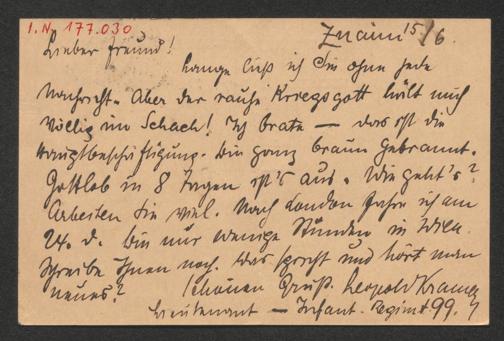 I.N. 177.030
Znaim 15/6.
Lieber Freund!
Lange ließ ich Sie ohne jede
Nachricht. Aber der rauhe Kriegsgott hält mich
völlig im Schach! Ich brate — das ist die
Hauptbeschäftigung. Bin ganz braun gebrannt.
Gottlob in 8 Tagen ist's aus. Wie geht's?
Arbeiten Sie viel. Nach London fahre ich am
24. d. bin nur wenige Stunden in Wien.
Schreibe Ihnen noch. Was spricht und hört man
neues? Schönen Gruß. Leopold Kramer
Lieutenant — Infant. Regimt 99.